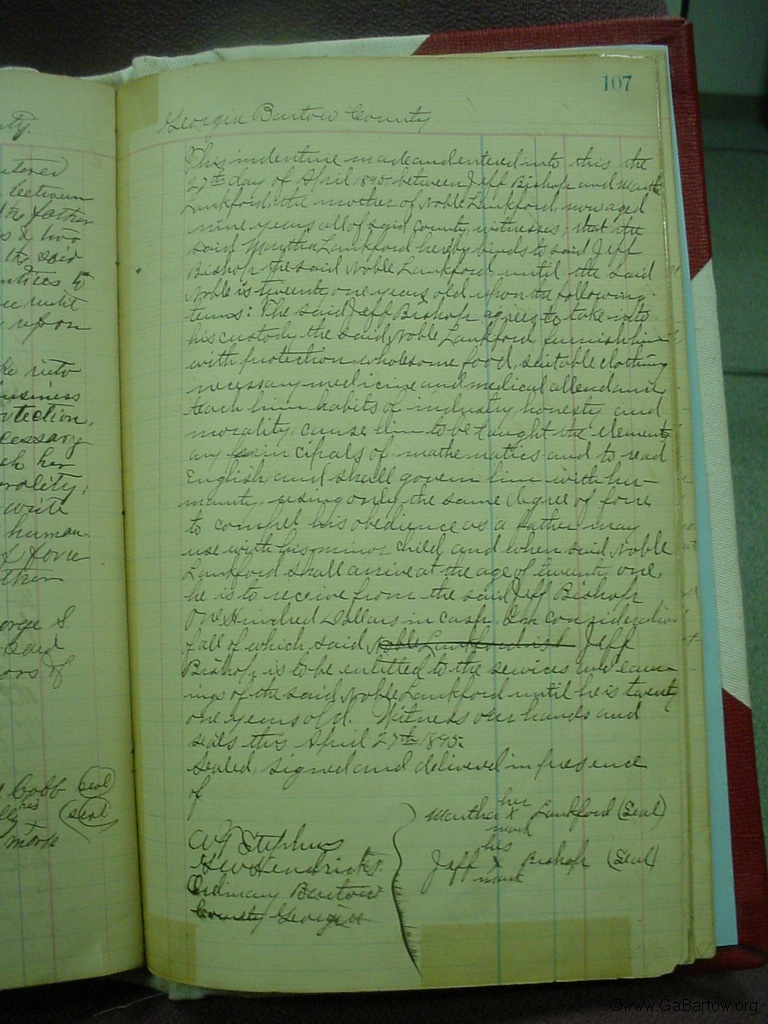 107
Georgia Bartow County
This indenture made and entered into this the
27th day of April 1895 between Jeff Bishop and Martha
Lankford, the mother of Noble Lankford, now aged
nine years all of said County, witnesses, that the
said Martha Lankford hereby binds to said Jeff
Bishop the said Noble Lankford, until the said
Noble is twenty one years old upon the following
terms: The said Jeff Bishop agrees to take into
his custody the said Noble Lankford, furnish him
with protection, wholesome food, suitable clothing
necessary medicine and medical attend and
teach him habits of industry, honesty and
morality, cause him to be taught the element
ary principals of mathematics and to read
English and shall govern him with hu-
manity, using only the same degree of force
to compel his obedience as a father may
use with his minor child and when said Noble
Lankford shall arrive at the age of twenty one,
he is to receive from the said Jeff Bishop
One Hundred Dollars in cash. In consideration
of all of which said Noble Lankford Jeff
Bishop is to be entitled to the services and earn-
ings of the said Noble Lankford until he is twenty
one years old. Witness our hands and
seals this April 27th 1895.
Sealed, signed and delivered in presence
of
her
Martha X Lankford (Seal)
mark
his
Jeff X Bishop (Seal)
mark
A G Stephens
G W Hendricks
Ordinary Bartow
County Georgia
nty.
between
the father
& two
the said
upon
into
business
protection,
cessary
her
morality,
write
human
force
George S.
said
of
Cobb seal
his
seal
x
mark
©www.GaBartow.org